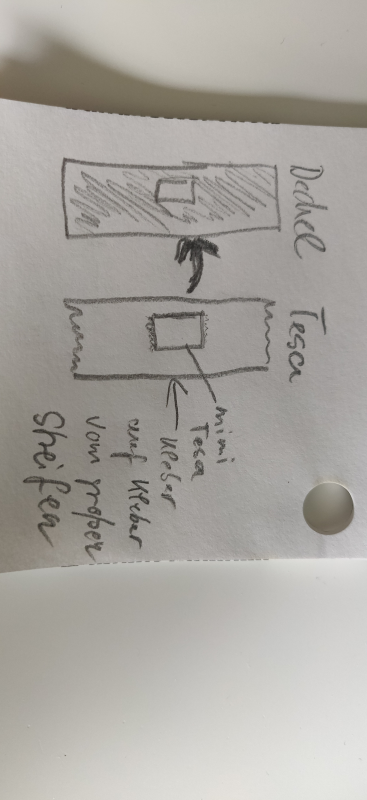 Deckel
Tesa
mini
Tesa
Kleber
auf Kleber
vom großen
Streifen